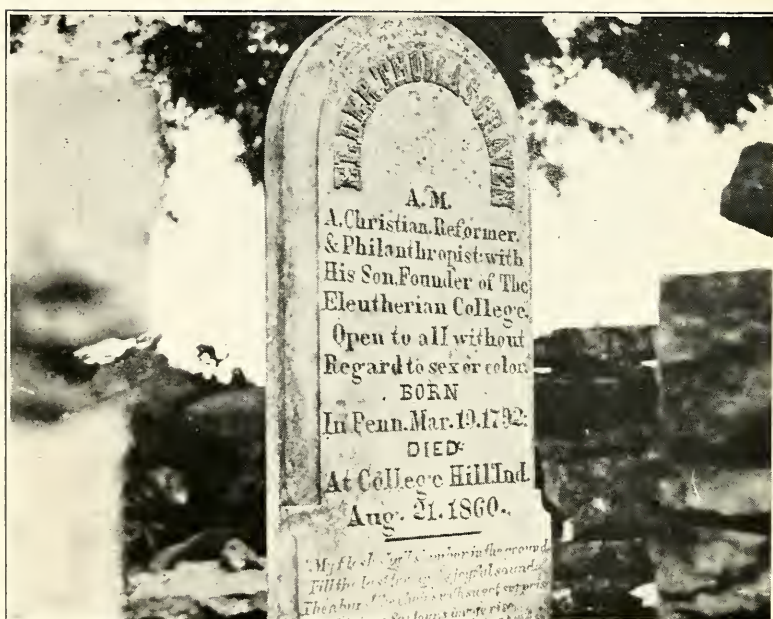 ELDER THOMAS CRAVEN
A.M.
A. Christian. Reformer.
& Philanthropist: with
His Son. Founder of The
Eleutherian College.
Open to all without
Regard to sex or color.
BORN
In Penn. Mar. 19. 1792:
DIED:
At College Hill Ind.
Aug. 21. 1860.
My flesh shall slumber in the ground
Till the last joyful sound
with sweet surprise